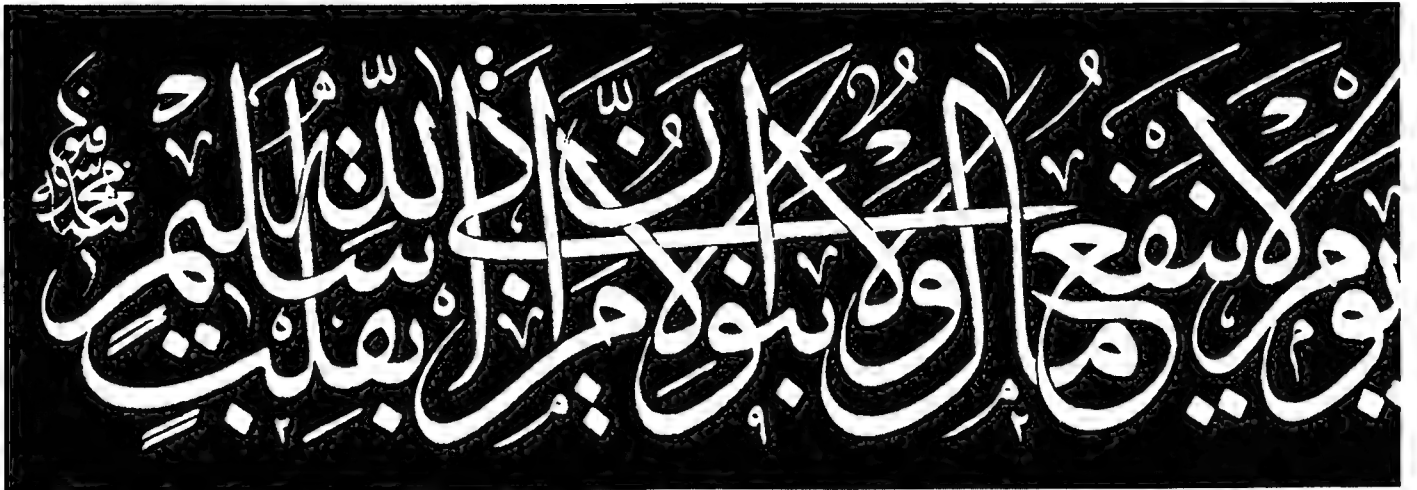 يَوْمَ لَا يَنْفَعُ مَالٌ وَلَا بَنُونَ إِلَّا مَنْ أَتَى اللَّهَ بِقَلْبٍ سَلِيمٍ
كتبه محمد